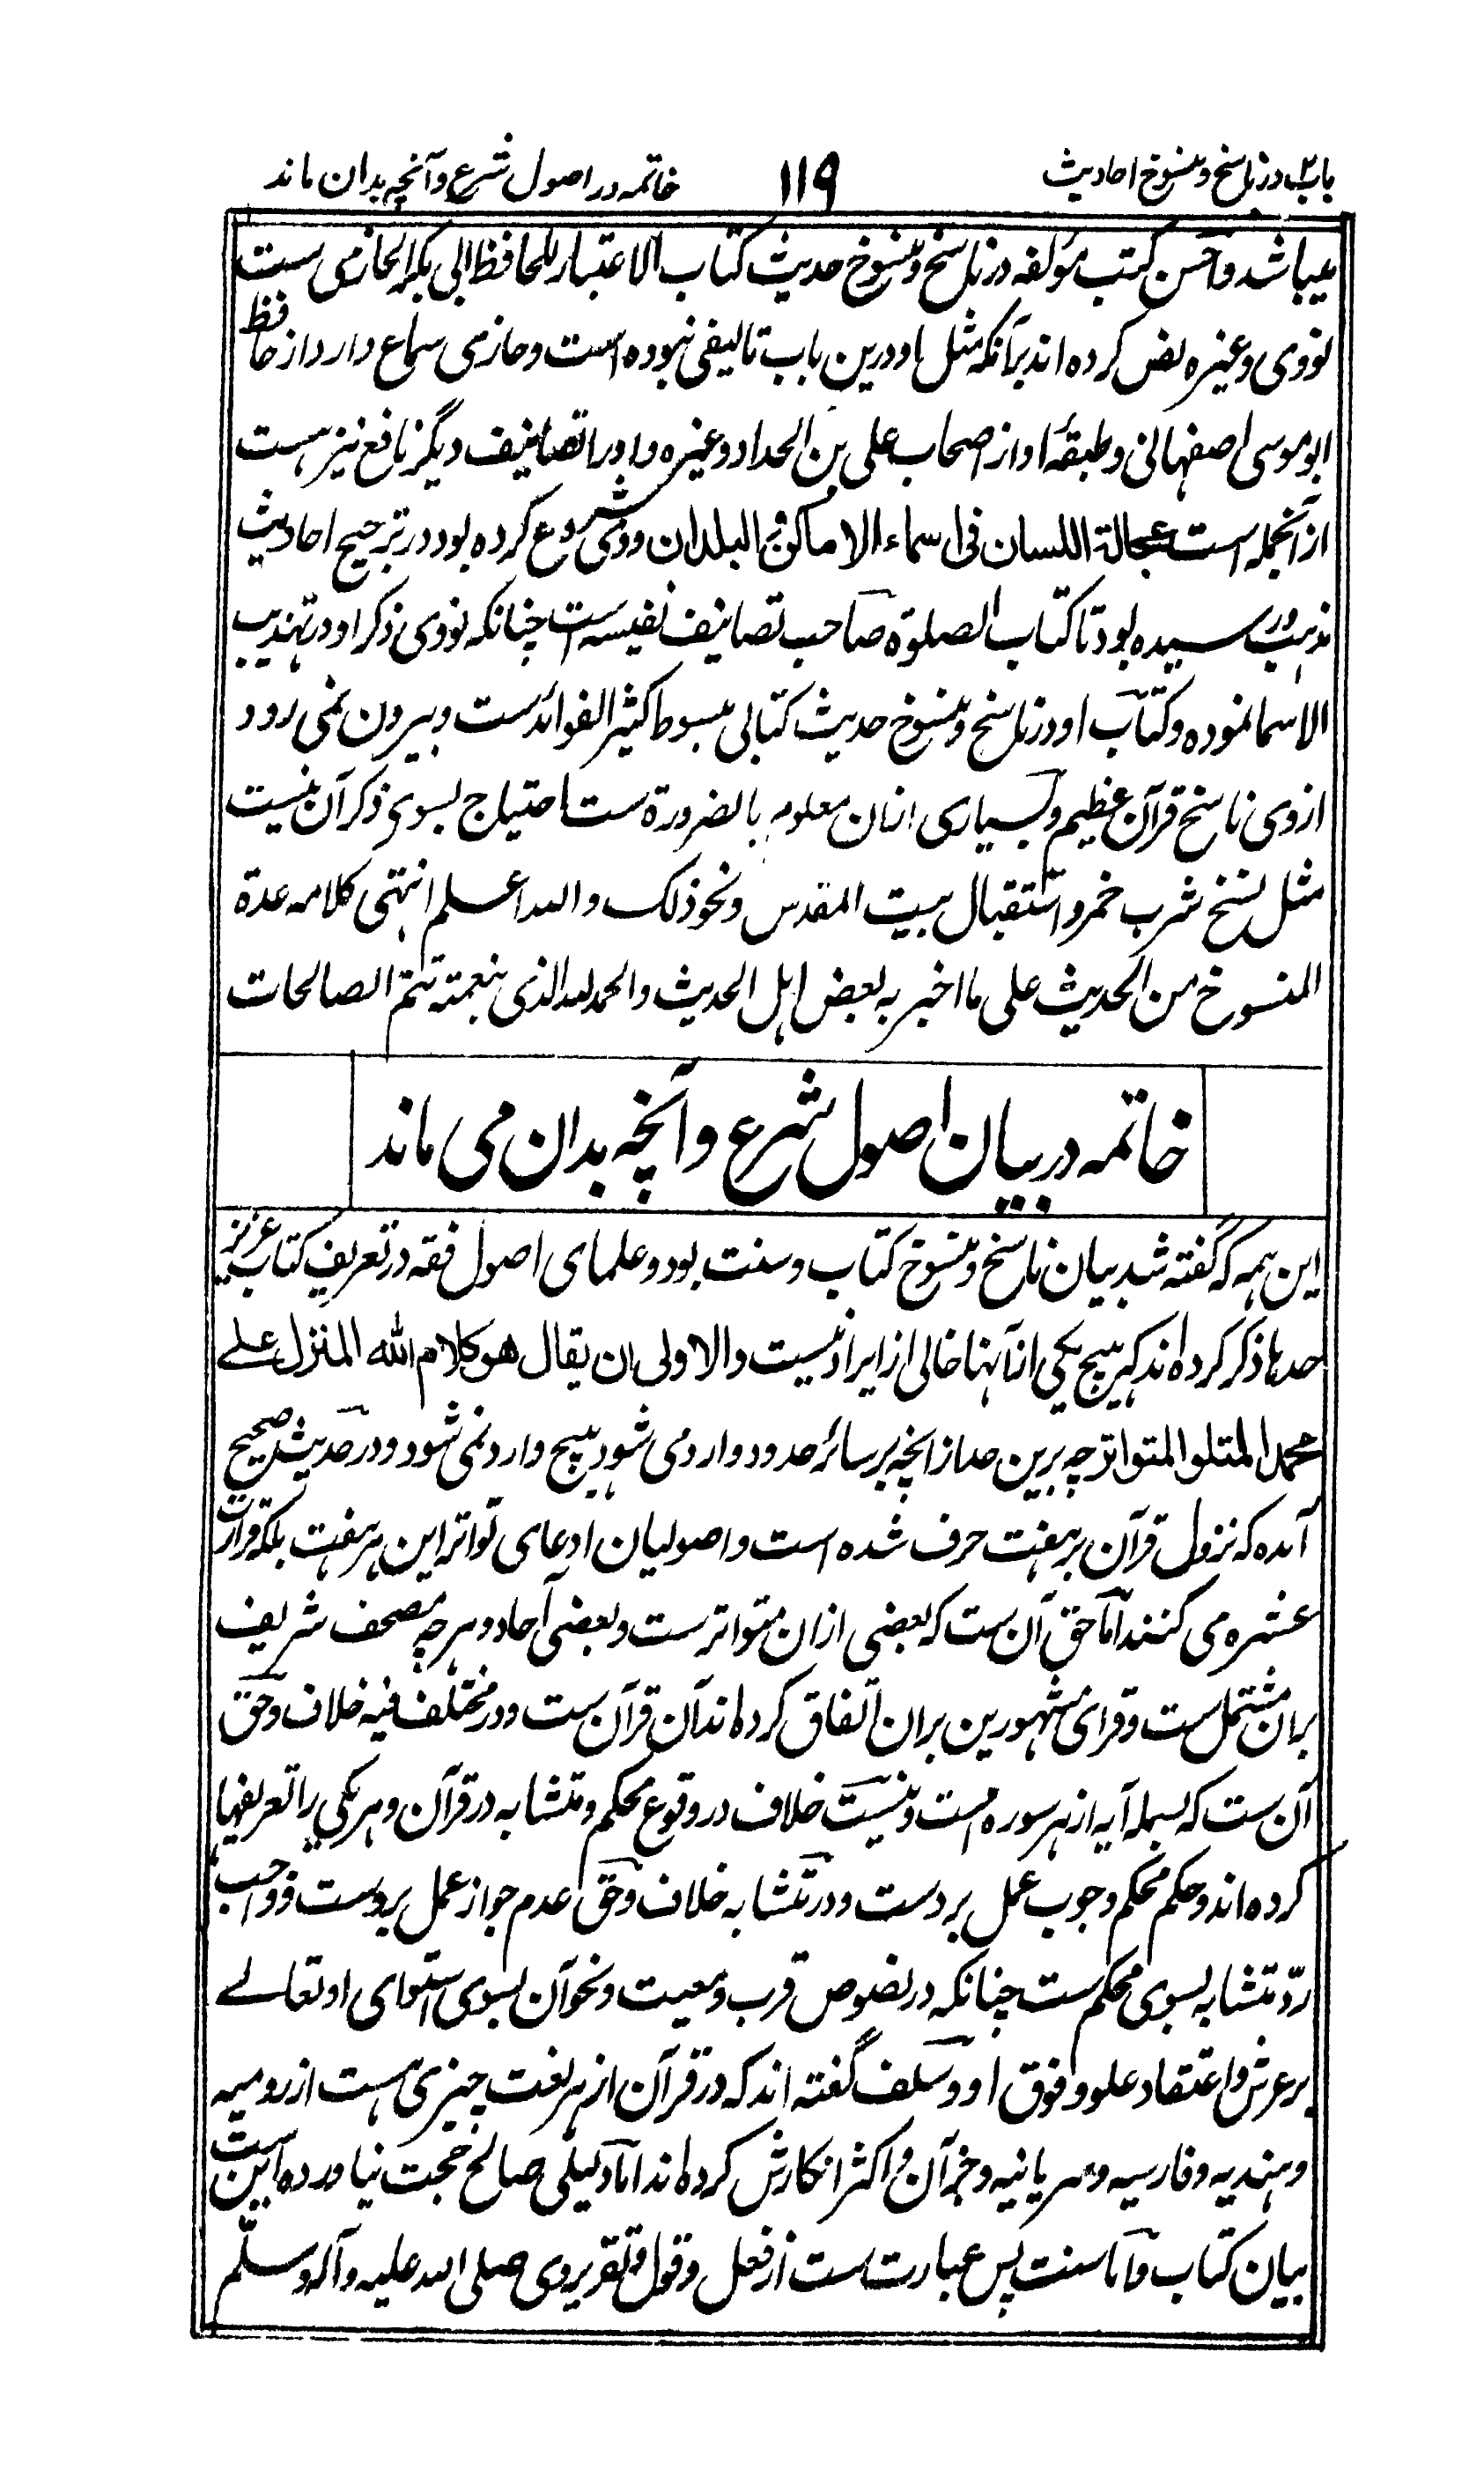 باب۲ در ناسخ و منسوخ احادیث
۱۱۹
خاتمه در اصول شرع و آنچه بدان ماند
میباشد و احسن کتب مؤلفه در ناسخ و منسوخ حدیث کتاب الاعتبار للحافظ ابی بکر الحازمی ست
نووی و غیره نص کرده اند بر آنکه مثل او درین باب تالیفی نبوده است و حازمی سماع دارد از حافظ
ابو موسی اصفهانی و طبقۀ او از اصحاب علی بن الحداد و غیره و او را تصانیف دیگر نافع نیز هست
از آنجمله است عجالة اللسان فی اسماء الاماکن و البلدان و وی شروع کرده بود در ترجیح احادیث
مذہب و رسیده بود تا کتاب الصلوة صاحب تصانیف نفیسه است چنانکه نووی ذکر او در تهذیب
الاسما نموده و کتاب او در ناسخ و منسوخ حدیث کتابی مبسوط کثیر الفوائدست و بیرون نمی رود
از وی ناسخ قرآن عظیم و بسیاری ازان معلوم بالضرورة ست احتیاج بسوی ذکر آن نیست
مثل نسخ شرب خمر و استقبال بیت المقدس و نحو ذلک و الله اعلم انتهی کلامه عدة
المنسوخ من الحدیث علی ما اخبر به بعض اہل الحدیث والحمد لله الذی بنعمته تتم الصالحات
خاتمه در بیان اصول شرع و آنچه بدان می ماند
این همه که گفته شد بیان ناسخ و منسوخ کتاب و سنت بود و علمای اصول فقه در تعریف کتاب عزیز
حدها ذکر کرده اند که ہیچ یکی از آنها خالی از ایراد نیست والاولی ان یقال هو کلام الله المنزل علے
محمد المتلو المتواتر چه برین حد از آنچه بر سائر حدود وارد می شود ہیچ وارد نمی شود و در حدیث صحیح
آمده که نزول قرآن بر ہفت حرف شده است و اصولیان ادعای تواتر این ہر ہفت بلکه قراآت
عشره می کنند اما حق آن ست که بعضی ازان متواتر ست و بعضی آحاد و هر چه مصحف شریف
بران مشتمل ست و قرای مشهورین بران اتفاق کرده اند آن قرآن ست و در مختلف فیه خلاف و حق
آن ست که بسمله آیه از هر سوره است و نیست خلاف در وقوع محکم و متشابه در قرآن و هر یکی را تعریفها
کرده اند و حکم محکم وجوب عمل بردست و در متشابه خلاف و حق عدم جواز عمل بروست و واجب
ردّ متشابه بسوی محکم ست چنانکه در نصوص قرب و معیت و نحو آن بسوی استوای او تعالے
بر عرش و اعتقاد علو و فوق او و سلف گفته اند که در قرآن از ہر لغت چیزی هست از رومیه
و ہندیه و فارسیه و سریانیه و جز آن و اکثر انکارش کرده اند اما دلیلی صالح حجت نیاورده این ست
بیان کتاب و اما سنت پس عبارت ست از فعل و قول و تقریر وی صلی الله علیه و آله وسلّم